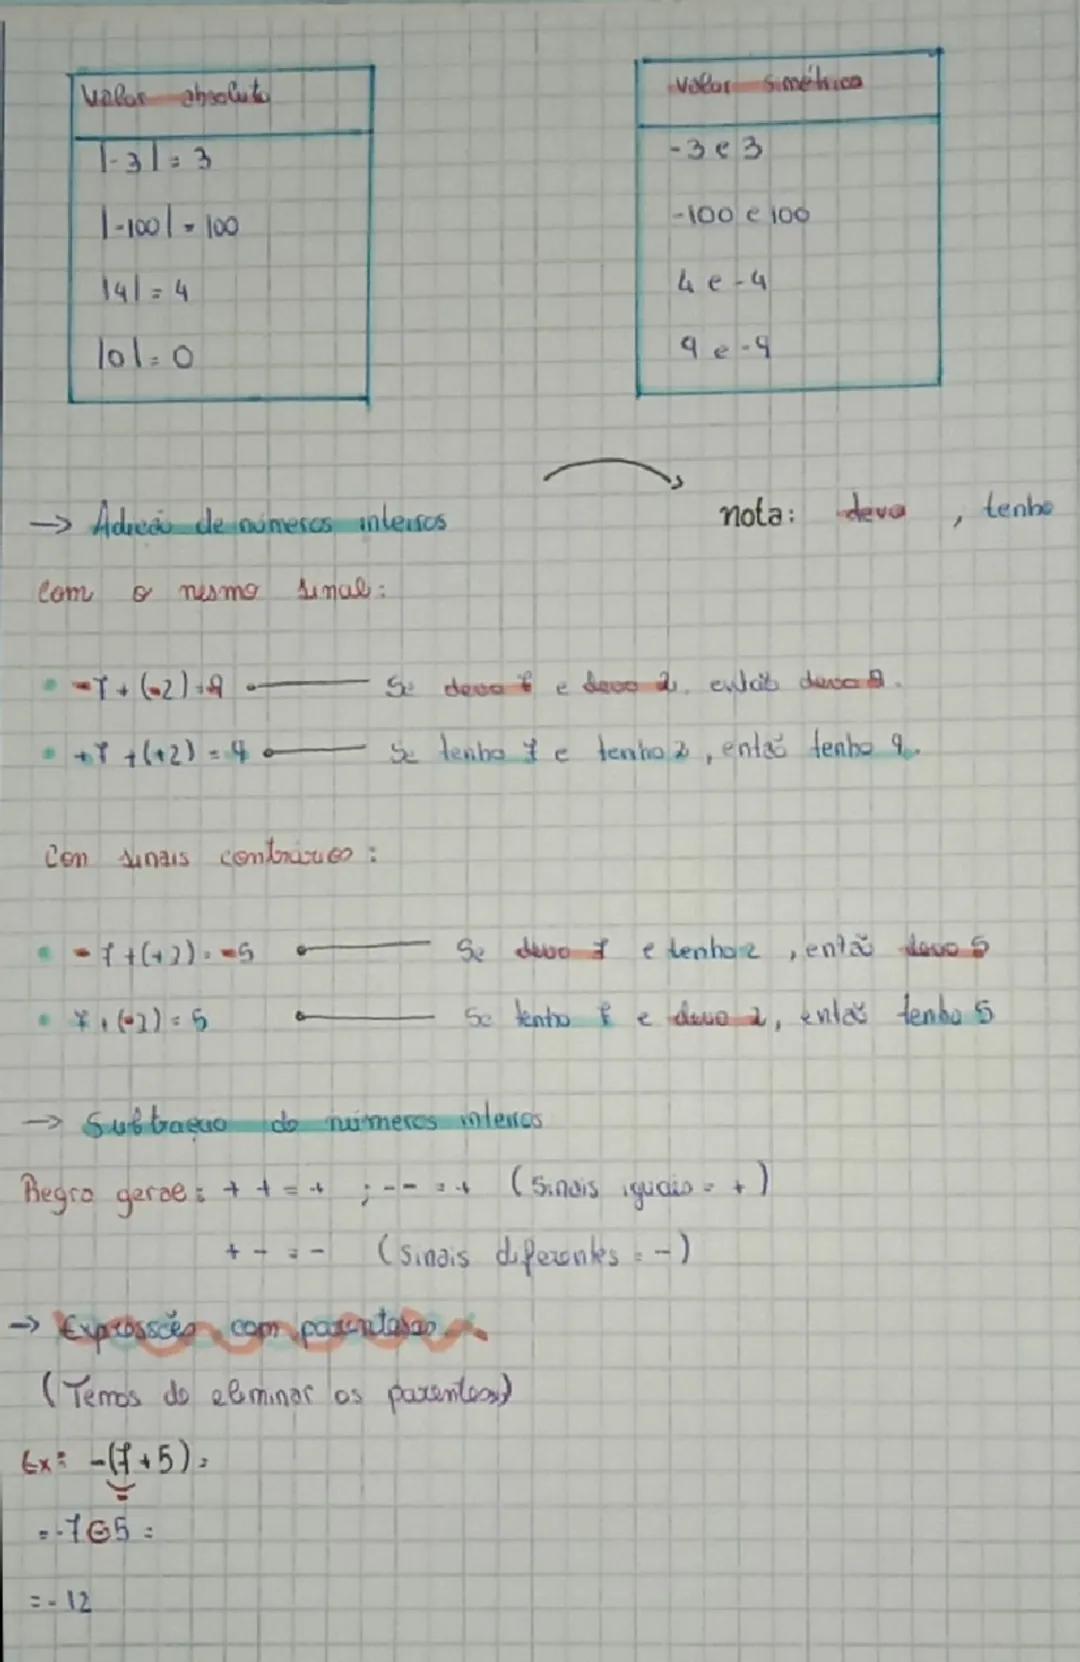 Valor absoluto
|-3| = 3
|-100| = 100
|4| = 4
|0| = 0
Valor simétrico
-3 e 3
-100 e 100
4 e -4
9 e -9
→ Adição de números inteiros
nota: devo , tenho
Com o mesmo sinal:
• -7 + (-2) = 9 Se devo 7 e devo 2, então devo 9.
• +7 + (+2) = 9 Se tenho 7 e tenho 2, então tenho 9.
Con sinais contrários:
• -7 + (+2) = -5 Se devo 7 e tenho 2, então devo 5
• 7 + (-2) = 5 Se tenho 7 e devo 2, então tenho 5
→ Subtração de números inteiros
Regra geral: + + = + ; - - = + (Sinais iguais = +)
+ - = - (Sinais diferentes = -)
→ Expressões com parênteses
(Temos de eliminar os parênteses)
Ex: -(7+5) =
= -7-5 =
= -12